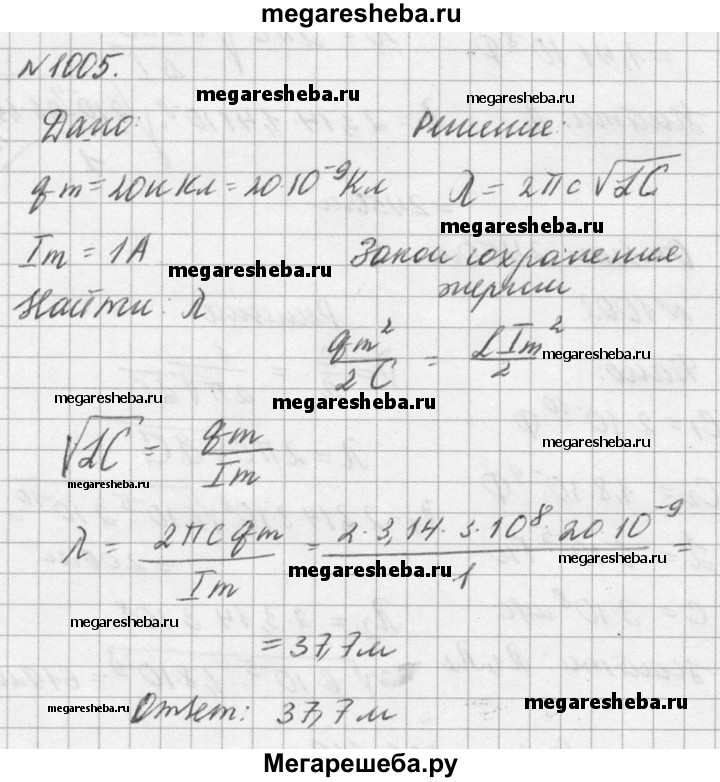 megaresheba.ru
N 1005.
megaresheba.ru
megaresheba.ru
Дано:
Решение:
qm = 20нКл = 20·10⁻⁹Кл
λ = 2πc√LC
megaresheba.ru
Im = 1A
megaresheba.ru
Закон сохранения
энергии
Найти: λ
qm²/2C = LIm²/2
megaresheba.ru
megaresheba.ru
megaresheba.ru
√LC = qm/Im
megaresheba.ru
megaresheba.ru
λ = 2πcqm/Im = 2·3,14·3·10⁸·20·10⁻⁹/1 =
megaresheba.ru
megaresheba.ru
megaresheba.ru
= 37,7м
megaresheba.ru
megaresheba.ru
Ответ: 37,7м
Мегарешеба.ру